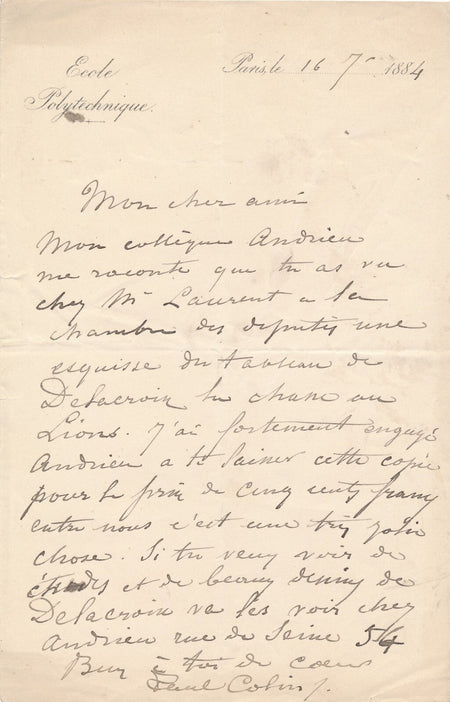 Ecole
Polytechnique.
Paris, le 16 7r 1884
Mon cher ami
Mon collègue Andrieu
me raconte que tu as vu
chez Mr Laurent a la
chambre des députés une
esquisse du tableau de
Delacroix la chasse au
Lions. J'ai fortement engagé
Andrieu a te laisser cette copie
pour le prix de cinq cents francs
entre nous c'est une très jolie
chose. Si tu veux voir de
études et de beaux dessins de
Delacroix va les voir chez
Andrieu rue de Seine 54
Bien à toi de cœur
Paul Colin